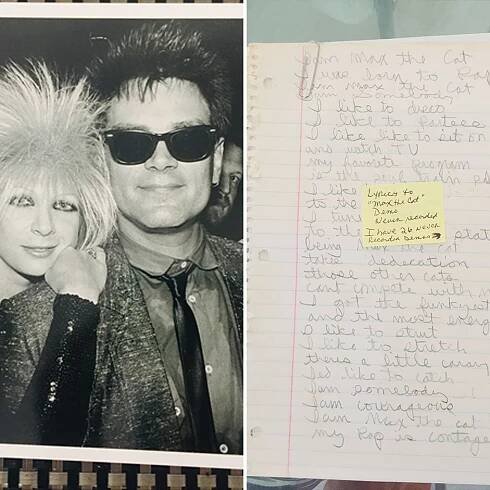 I am Max the Cat
I was born to Rap
I am Max the Cat
I like to disco
I like to partees
I like like to sit on
and watch TV
my favorite program
is the train
I like
to the
I tune
to the stat
being Max the Cat
take dedecation
those other cats
cant compete with m
I got the funkyest
and the most energ
I like to strut
I like to stretch
theres a little canary
Id like to catch
I am somebody
I am courageous
I am Max the cat
my Rap is contage
Lyrics to
"Max the Cat"
Demo
Never recorded
I have 26 never
Recorded Demos